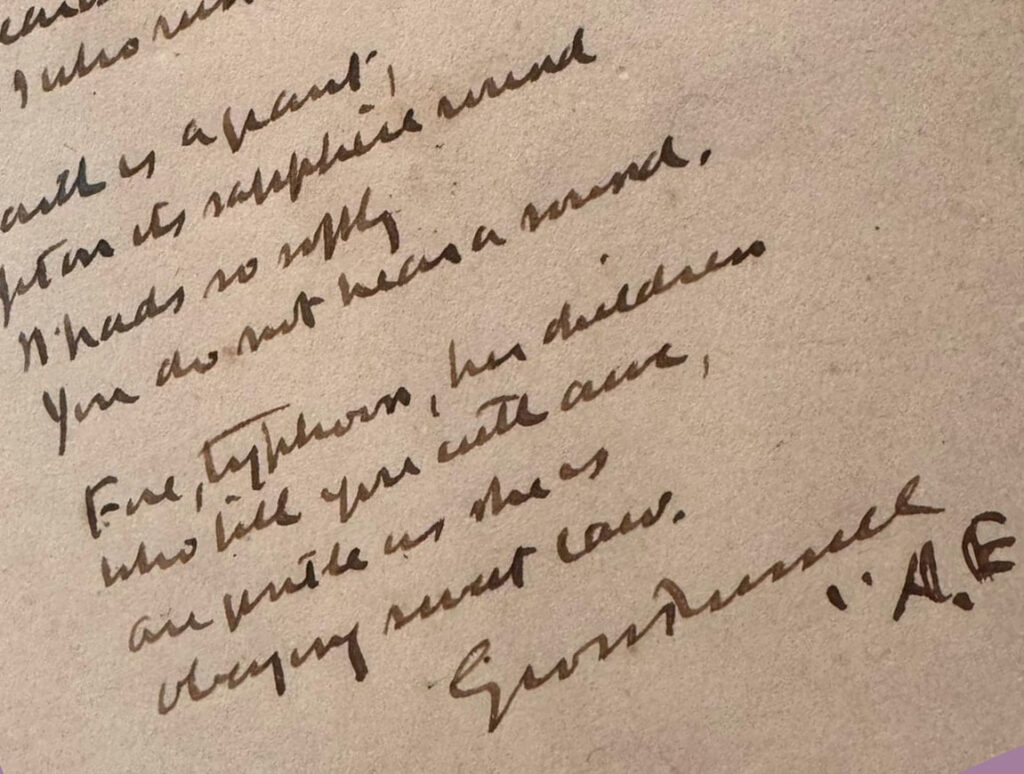 I who
is a giant,
its sapphire round
It pads so softly
You do not hear a sound.
Fire, typhoon, her children
who fill you with awe,
are gentle as she is
obeying sweet law.
George Russell
"A.E